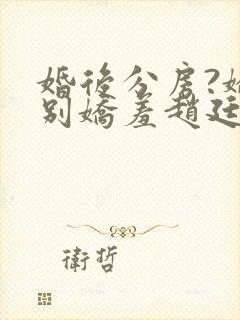 婚後分房?
別嬌羞趙廷
衛哲